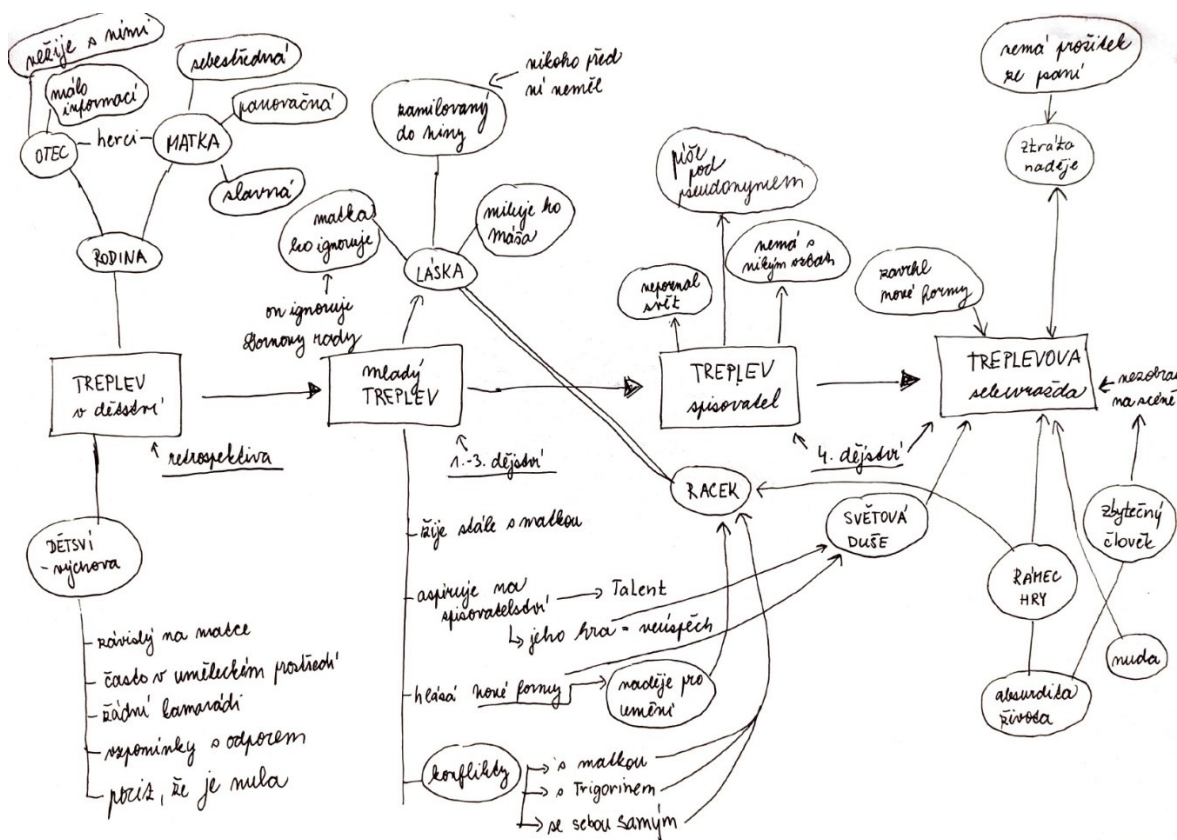 nežije s nimi
málo
informací
OTEC
herci
MATKA
sebestředná
panovačná
slavná
RODINA
TREPLEV
v dětství
retrospektiva
DĚTSVÍ
-výchova
závislý na matce
často v uměleckém prostředí
žádní kamarádi
vzpomínky s odporem
pocit, že je nula
nikoho před
ní neměl
zamilovaný
do Niny
matka
ho ignoruje
miluje ho
Máša
LÁSKA
on ignoruje
Dornovy rady
mladý
TREPLEV
1.-3. dějství
žije stále s matkou
aspiruje na
spisovatelství
Talent
jeho hra = neúspěch
hlásá nové formy
naděje pro
umění
konflikty
s matkou
s Trigorinem
se sebou samým
RACEK
píše
pod
pseudonymem
nepoznal
svět
nemá s
nikým vztah
TREPLEV
spisovatel
4. dějství
SVĚTOVÁ
DUŠE
nemá prožitek
ze psaní
ztráta
naděje
zavrhl
nové formy
TREPLEVOVA
sebevražda
nezobraz
na scéně
zbytečný
člověk
RÁMEC
HRY
nuda
absurdita
života